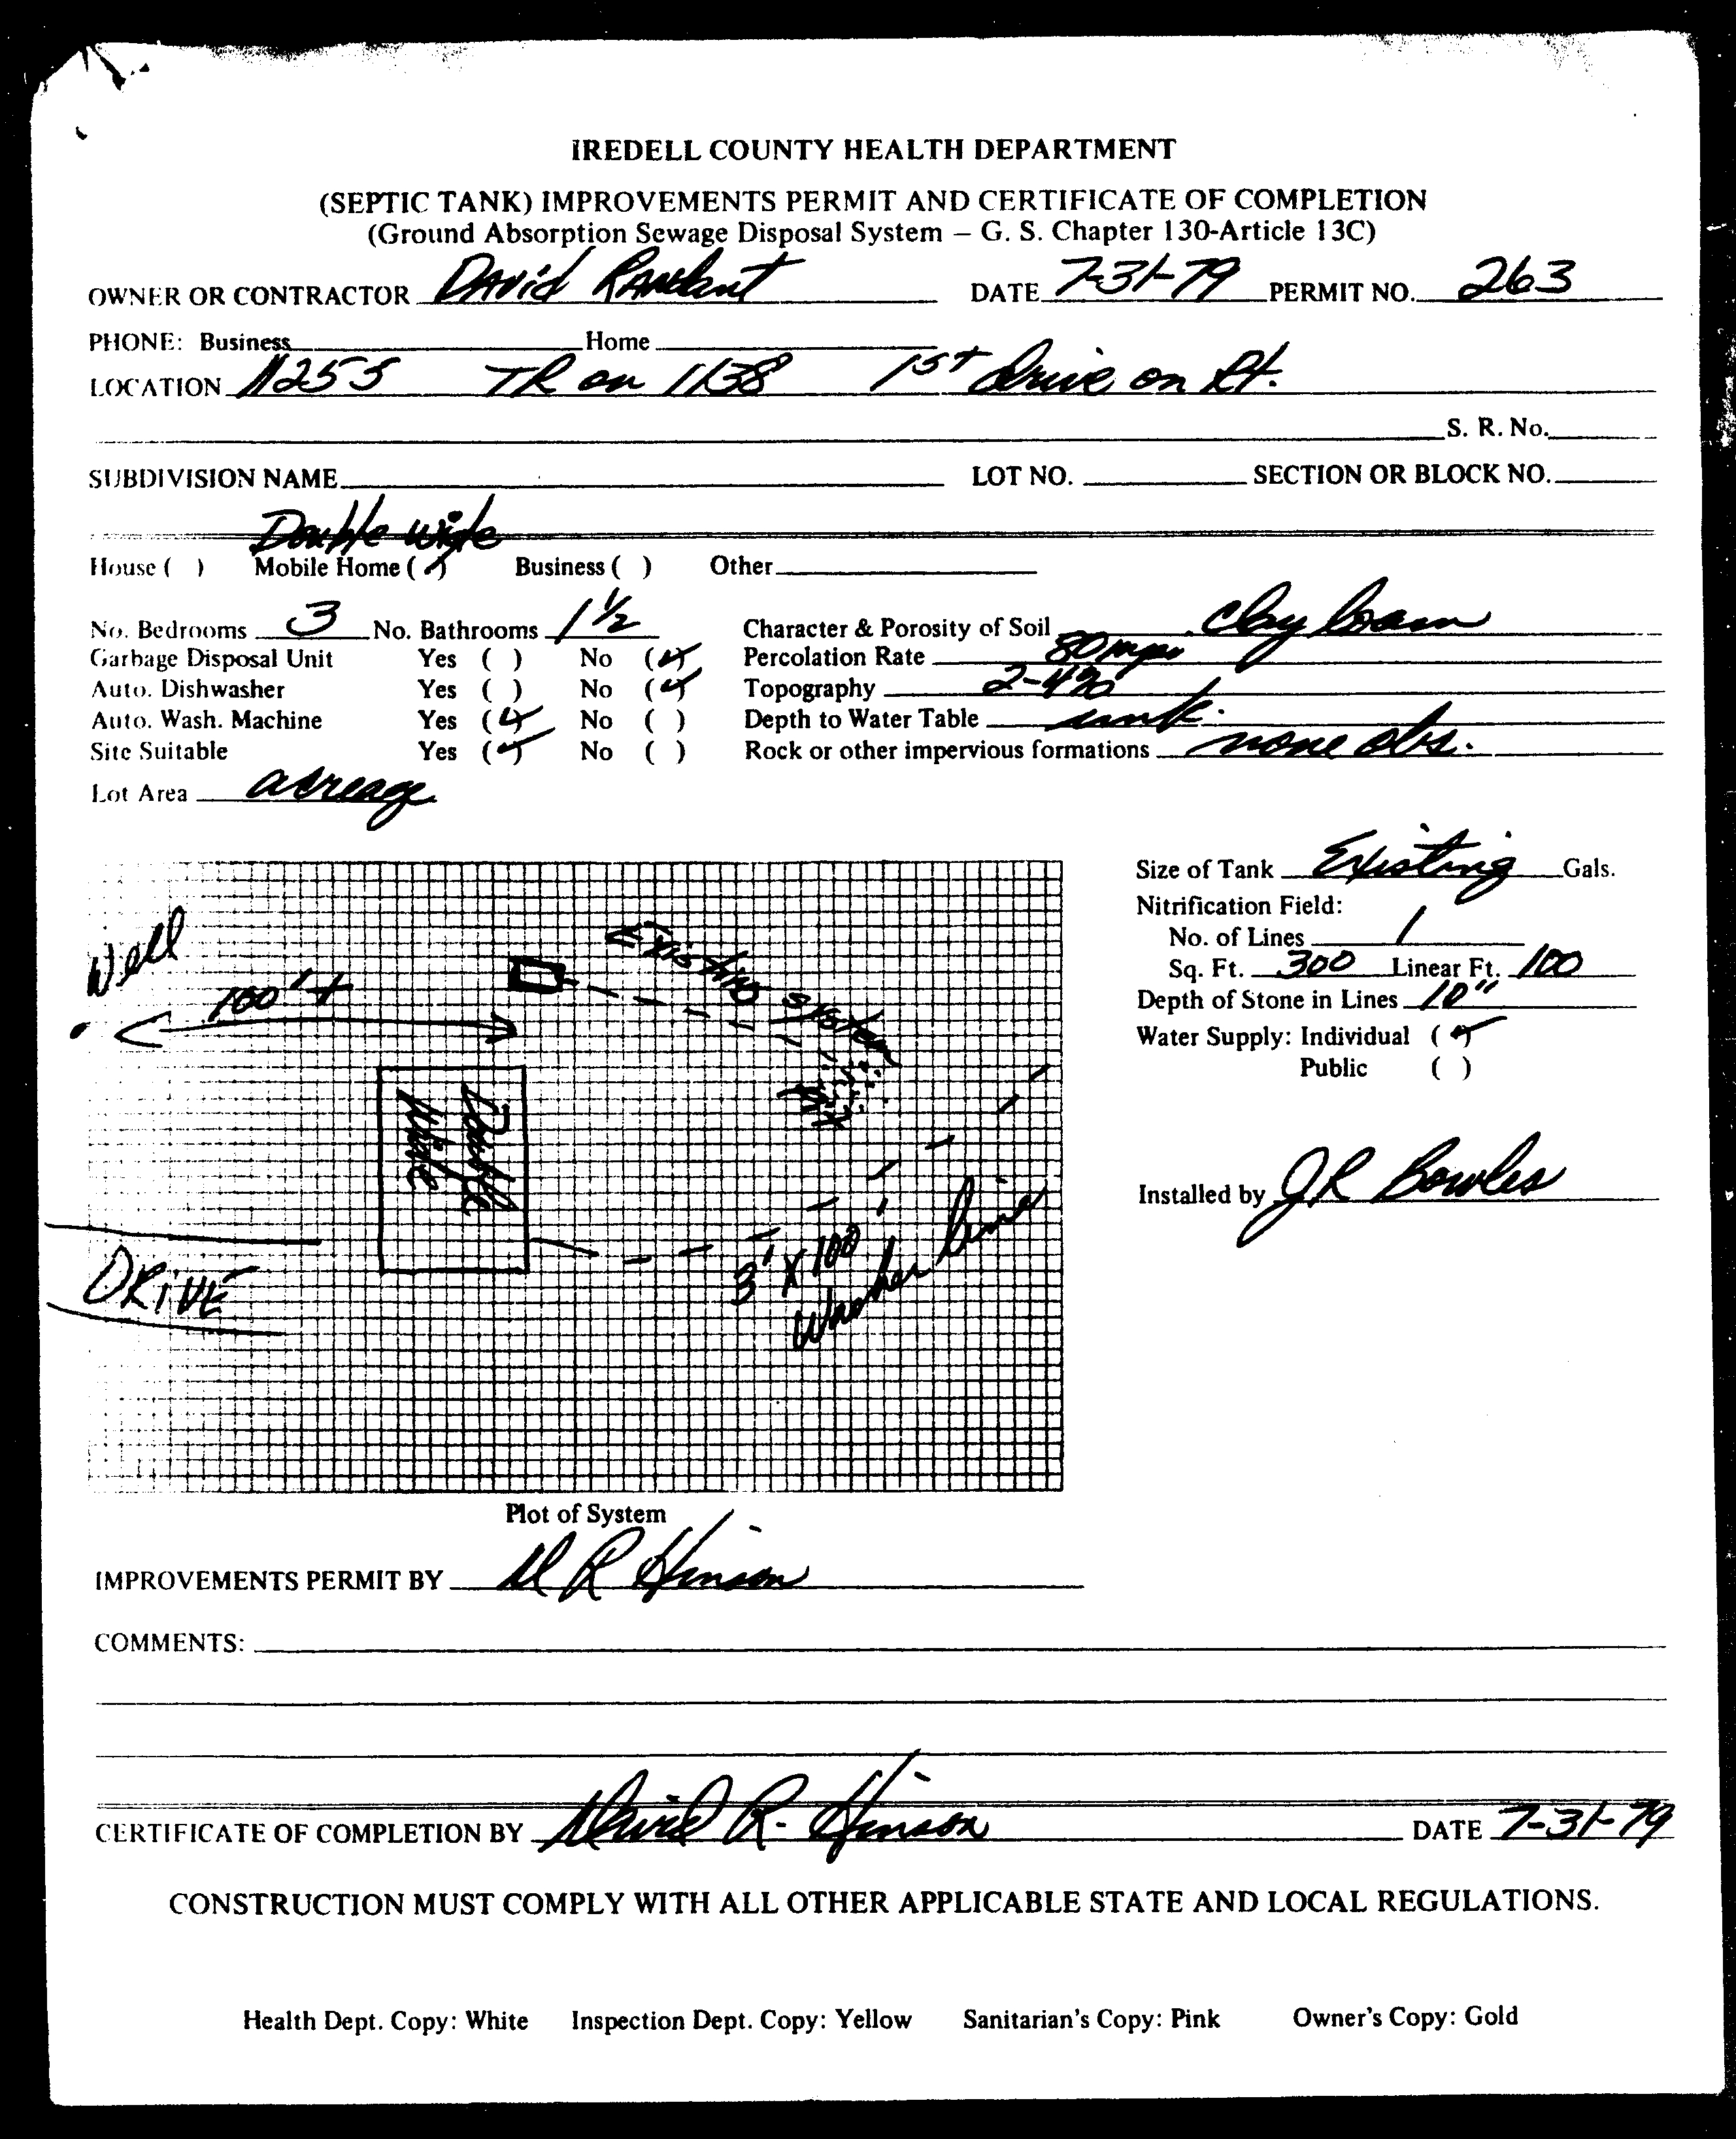 IREDELL COUNTY HEALTH DEPARTMENT
(SEPTIC TANK) IMPROVEMENTS PERMIT AND CERTIFICATE OF COMPLETION
(Ground Absorption Sewage Disposal System – G. S. Chapter 130-Article 13C)
OWNER OR CONTRACTOR David DATE 7-31-79 PERMIT NO. 263
PHONE: Business Home
LOCATION TR on 1138 1st drive on Rt.
S. R. No.
SUBDIVISION NAME LOT NO. SECTION OR BLOCK NO.
Double wide
House ( ) Mobile Home (✓) Business ( ) Other
No. Bedrooms 3 No. Bathrooms 1 1/2 Character & Porosity of Soil Clay loam
Garbage Disposal Unit Yes ( ) No (✓) Percolation Rate 80 mpi
Auto. Dishwasher Yes ( ) No (✓) Topography 2-4%
Auto. Wash. Machine Yes (✓) No ( ) Depth to Water Table unk.
Site Suitable Yes (✓) No ( ) Rock or other impervious formations none obs.
Lot Area acreage
Size of Tank Existing Gals.
Nitrification Field:
No. of Lines 1
Sq. Ft. 300 Linear Ft. 100
Depth of Stone in Lines 10"
Water Supply: Individual (✓)
Public ( )
Installed by JR Bowles
Well
100'+
Existing system
Pit
Double
Wide
DRIVE
3' X 100'
Washer Line
Plot of System
IMPROVEMENTS PERMIT BY D R Hinson
COMMENTS:
CERTIFICATE OF COMPLETION BY David R. Hinson DATE 7-31-79
CONSTRUCTION MUST COMPLY WITH ALL OTHER APPLICABLE STATE AND LOCAL REGULATIONS.
Health Dept. Copy: White Inspection Dept. Copy: Yellow Sanitarian's Copy: Pink Owner's Copy: Gold